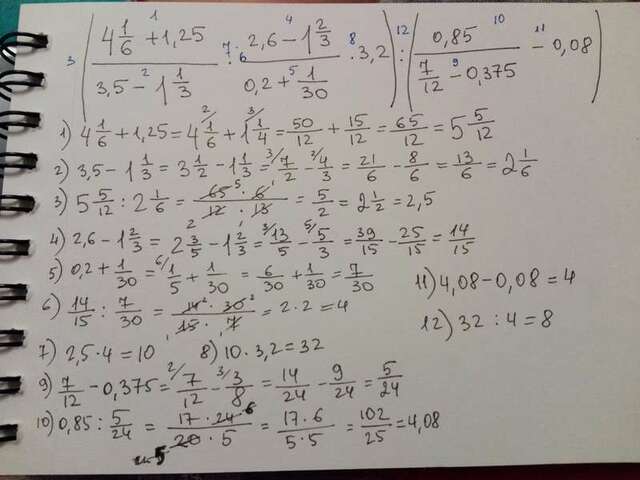 3 ( (4 1/6 + 1,25) / (3,5 − 1 1/3) : (2,6 − 1 2/3) / (0,2 + 1/30) · 3,2 ) : ( 0,85 / (7/12 − 0,375) − 0,08 )
1) 4 1/6 + 1,25 = 4 1/6 + 1 1/4 = 50/12 + 15/12 = 65/12 = 5 5/12
2) 3,5 − 1 1/3 = 3 1/2 − 1 1/3 = 7/2 − 4/3 = 21/6 − 8/6 = 13/6 = 2 1/6
3) 5 5/12 : 2 1/6 = 65 · 6 / 12 · 13 = 5/2 = 2 1/2 = 2,5
4) 2,6 − 1 2/3 = 2 3/5 − 1 2/3 = 13/5 − 5/3 = 39/15 − 25/15 = 14/15
5) 0,2 + 1/30 = 1/5 + 1/30 = 6/30 + 1/30 = 7/30
6) 14/15 : 7/30 = 14 · 30 / 15 · 7 = 2 · 2 = 4
7) 2,5 · 4 = 10 8) 10 · 3,2 = 32
9) 7/12 − 0,375 = 7/12 − 3/8 = 14/24 − 9/24 = 5/24
10) 0,85 : 5/24 = 17 · 24 / 20 · 5 = 17 · 6 / 5 · 5 = 102/25 = 4,08
11) 4,08 − 0,08 = 4
12) 32 : 4 = 8